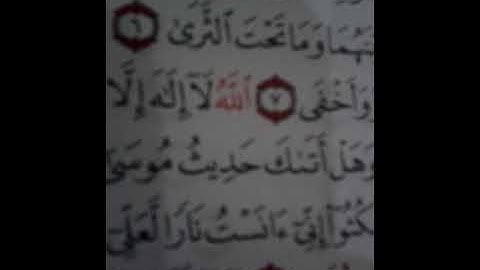 ينهما وما تحت الثرى ٦
وأخفى ٧ الله لآ إله إلا
وهل أتىك حديث موسى
كثوا إني ءانست نارا لعلي